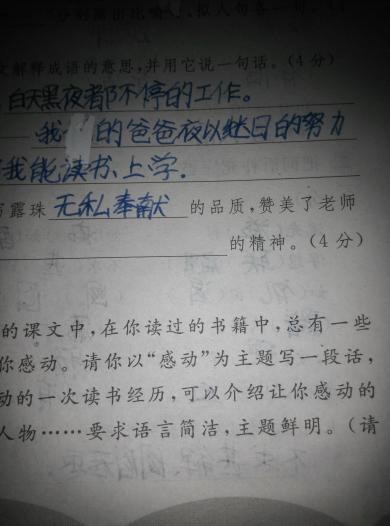 文解释成语的意思,并用它说一句话。(4分)
白天黑夜都不停的工作。
我 的爸爸夜以继日的努力
我能读书、上学.
露珠无私奉献的品质,赞美了老师
的精神。(4分)
的课文中,在你读过的书籍中,总有一些
你感动。请你以“感动”为主题写一段话,
动的一次读书经历,可以介绍让你感动的
人物……要求语言简洁,主题鲜明。(请